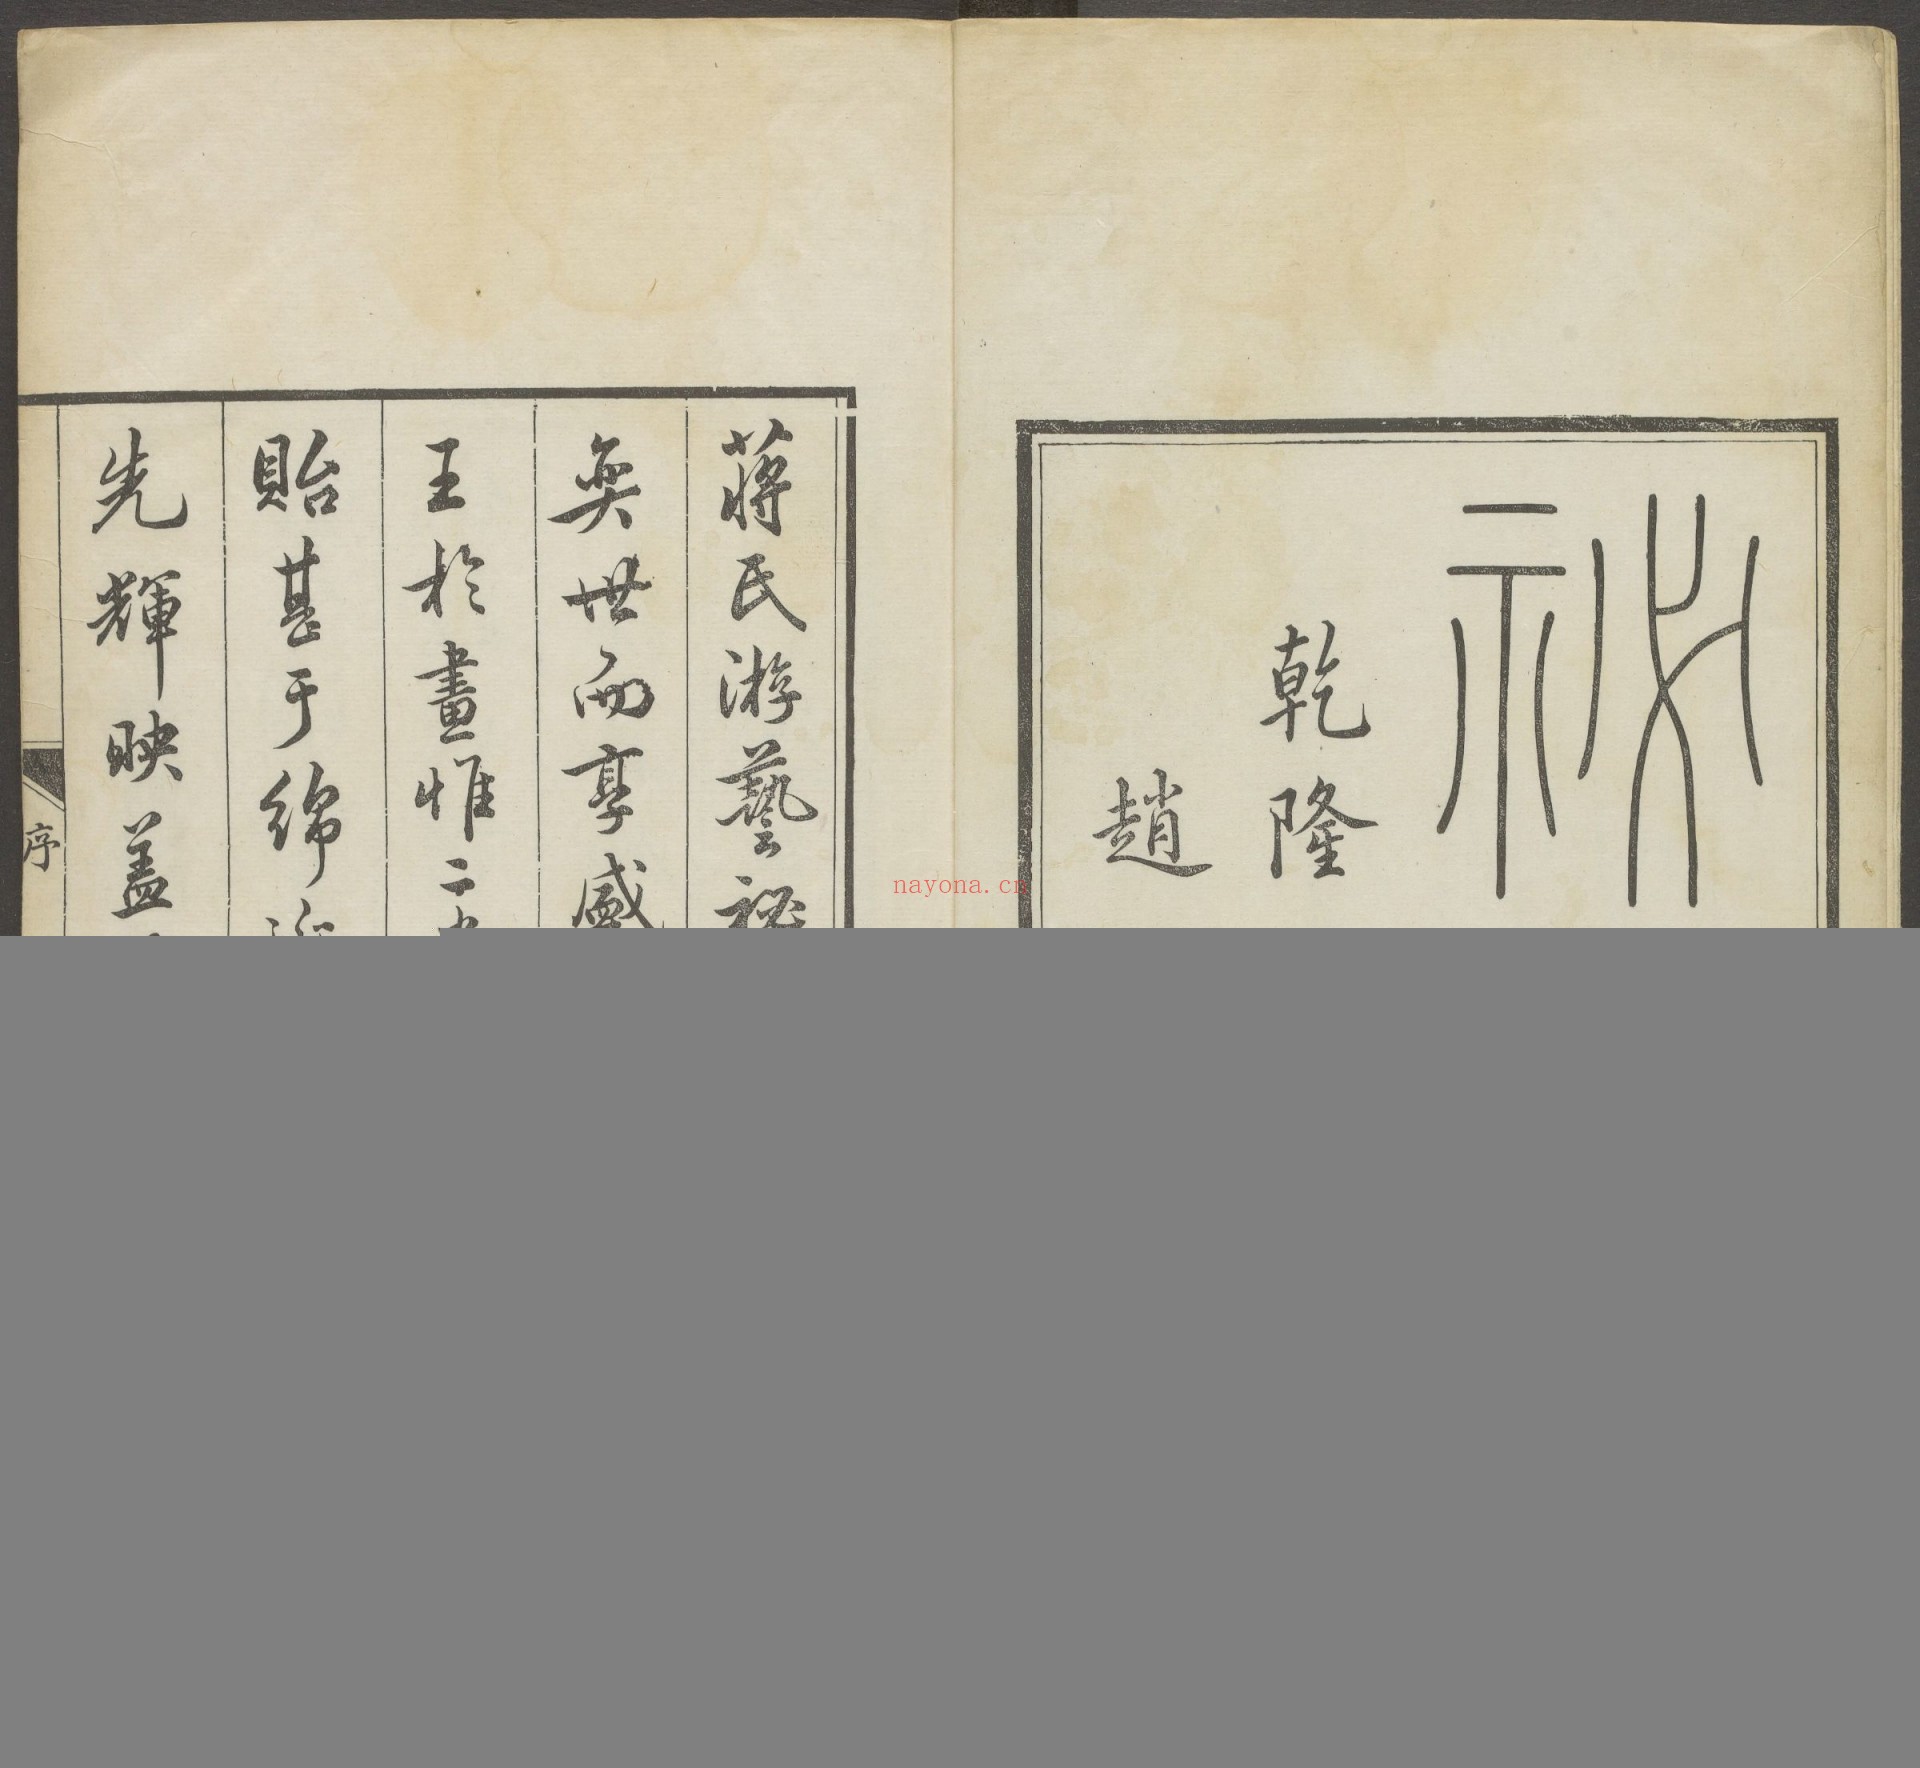 祕
乾隆
趙
蔣氏游藝祕
奕世而享盛
王於畫惟二
貽甚于綿
先輝映蓋
序
nayona.cn